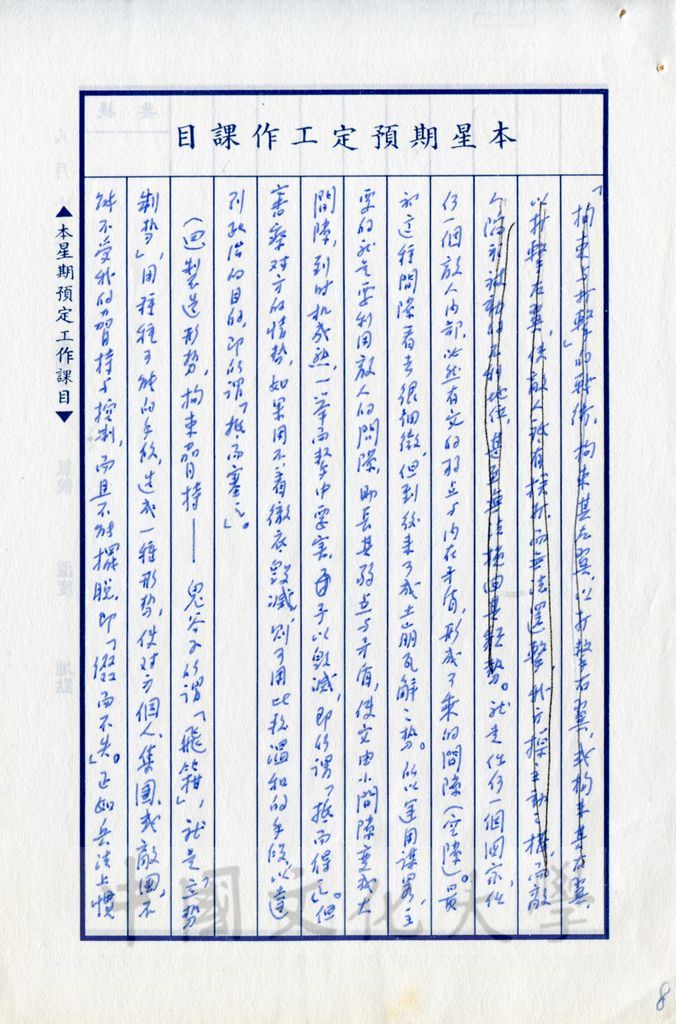 本星期預定工作課目
「拘束与打擊」的戰術，拘束其左翼，以打擊右翼，或拘束其右翼，
以打擊左翼，使敵人祇有挨打而無法還擊，我方操主動之權，而敵
人陷於被動的不利地位，甚至無法挽回其頹勢。就是任何一個國家，任
何一個敵人內部，必然有它的弱点与內在矛盾，形成可乘的間隙（空隙）。最
初這種間隙看去很細微，但到後來可成土崩瓦解之勢。所以運用謀略，主
要的就是要利用敵人的間隙，助長其弱点与矛盾，使它由小間隙變成大
間隙，到时机成熟，一舉而擊中要害，予以毀滅，即所謂「抵而得之」。但
審察对方的情勢，如果用不着徹底毀滅，則可用比較溫和的手段，以達
到政治的目的，即所謂「抵而塞之」。
（四）製造形勢，拘束脅持——鬼谷子所謂「飛箝」，就是「立勢
制勢」，用種種可能的手段，造成一種形勢，使对方個人、集團，或敵國，不
能不受我的脅持与控制，而且不能擺脫，即「綴而不失」。正如兵法上慣
▲本星期預定工作課目▼
中國文化大學
8